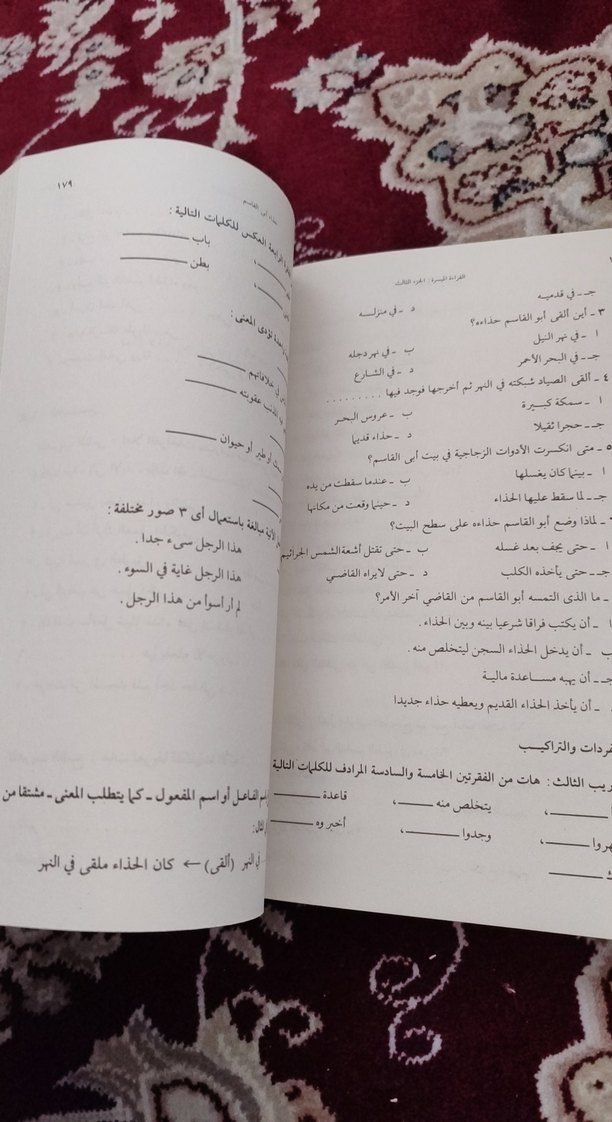 القراءة الميسرة : الجزء الثالث
جـ - في قدميه
د - في منزلـه
٣ - أين ألقى أبو القاسم حذاءه؟
ا - في نهر النيل
ب - في نهر دجلة
جـ - في البحر الأحمر
د - في الشارع
٤ - ألقى الصياد شبكته في النهر ثم أخرجها فوجد فيها . . . . . . . . .
ا - سمكة كبيرة
ب - عروس البحر
جـ - حجرا ثقيلا
د - حذاء قديما
٥ - متى انكسرت الأدوات الزجاجية في بيت أبى القاسم؟
ا - بينما كان يغسلها
ب - عندما سقطت من يده
جـ - لما سقط عليها الحذاء
د - حينما وقعت من مكانها
- لماذا وضع أبو القاسم حذاءه على سطح البيت؟
ا - حتى يجف بعد غسله
ب - حتى تقتل أشعة الشمس الجراثيم
جـ - حتى يأخذه الكلب
د - حتى لا يراه القاضي
- ما الذى التمسه أبو القاسم من القاضي آخر الأمر؟
ا - أن يكتب فراقا شرعيا بينه وبين الحذاء .
ب - أن يدخل الحذاء السجن ليتخلص منه .
جـ - أن يهبه مساعدة مالية
- أن يأخذ الحذاء القديم ويعطيه حذاء جديدا
والتراكيب
الثالث : هات من الفقرتين الخامسة والسادسة المرادف للكلمات التالية
يتخلص منه ــــــ ،
قاعدة ــــــ
وجدوا ــــــ ،
أخبروه ــــــ
١٧٩
حذاء أبى القاسم
الرابعة العكس للكلمات التالية :
باب ــــــ
بطن ــــــ
تؤدى المعنى :
في خلافاتهم ــــــ
عقوبته ــــــ
أو طير أو حيوان ــــــ
الآتية مبالغة باستعمال أى ٣ صور مختلفة :
هذا الرجل سىء جدا .
هذا الرجل غاية في السوء .
لم أر أسوأ من هذا الرجل .
اسم الفاعل أو اسم المفعول - كما يتطلب المعنى - مشتقا من
في النهر (ألقى) ← كان الحذاء ملقى في النهر